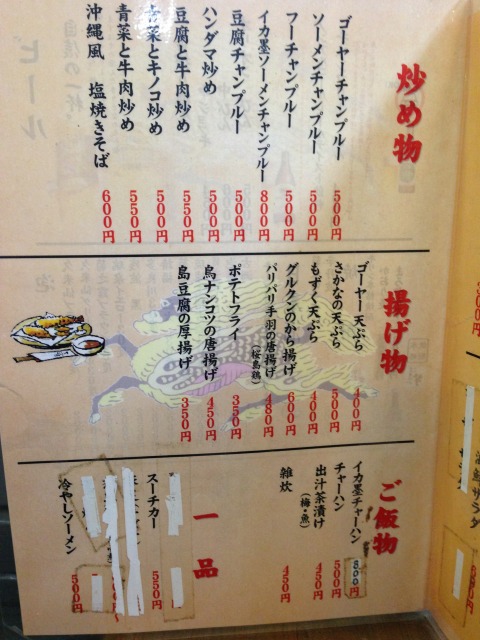 炒め物
ゴーヤーチャンプルー 500円
ソーメンチャンプルー 500円
フーチャンプルー 500円
イカ墨ソーメンチャンプルー 800円
豆腐チャンプルー 500円
ハンダマ炒め 500円
豆腐と牛肉炒め 550円
青菜とキノコ炒め 500円
青菜と牛肉炒め 550円
沖縄風 塩焼きそば 600円
揚げ物
ゴーヤー天ぷら 400円
さかなの天ぷら 500円
もずく天ぷら 400円
グルクンのから揚げ 600円
パリパリ手羽の唐揚げ(桜島鶏) 480円
ポテトフライ 350円
鳥ナンコツの唐揚げ 450円
島豆腐の厚揚げ 350円
ご飯物
イカ墨チャーハン 800円
チャーハン 500円
出汁茶漬け(梅・魚) 450円
雑炊 450円
一品
スーチカー 550円
冷やしソーメン 500円
海鮮サラダ